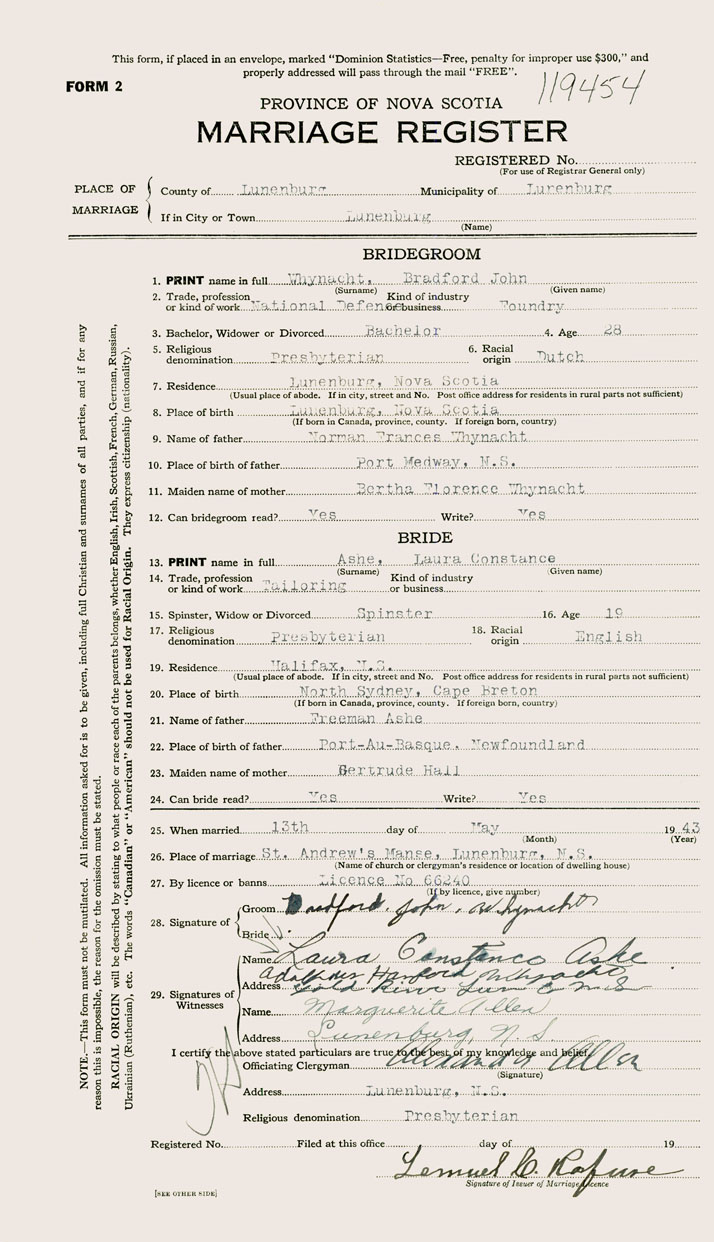 This form, if placed in an envelope, marked "Dominion Statistics—Free, penalty for improper use $300," and
properly addressed will pass through the mail "FREE".
FORM 2
119454
PROVINCE OF NOVA SCOTIA
MARRIAGE REGISTER
REGISTERED No.
(For use of Registrar General only)
PLACE OF MARRIAGE
County of Lunenburg Municipality of Lunenburg
If in City or Town Lunenburg
(Name)
BRIDEGROOM
1. PRINT name in full Whynacht, Bradford John
(Surname) (Given name)
2. Trade, profession or kind of work National Defence Kind of industry or business Foundry
3. Bachelor, Widower or Divorced Bachelor 4. Age 28
5. Religious denomination Presbyterian 6. Racial origin Dutch
7. Residence Lunenburg, Nova Scotia
(Usual place of abode. If in city, street and No. Post office address for residents in rural parts not sufficient)
8. Place of birth Lunenburg, Nova Scotia
(If born in Canada, province, county. If foreign born, country)
9. Name of father Norman Frances Whynacht
10. Place of birth of father Port Medway, N.S.
11. Maiden name of mother Bertha Florence Whynacht
12. Can bridegroom read? Yes Write? Yes
BRIDE
13. PRINT name in full Ashe, Laura Constance
(Surname) (Given name)
14. Trade, profession or kind of work Tailoring Kind of industry or business
15. Spinster, Widow or Divorced Spinster 16. Age 19
17. Religious denomination Presbyterian 18. Racial origin English
19. Residence Halifax, N.S.
(Usual place of abode. If in city, street and No. Post office address for residents in rural parts not sufficient)
20. Place of birth North Sydney, Cape Breton
(If born in Canada, province, county. If foreign born, country)
21. Name of father Freeman Ashe
22. Place of birth of father Port-Au-Basque, Newfoundland
23. Maiden name of mother Gertrude Hall
24. Can bride read? Yes Write? Yes
25. When married 13th day of May 1943
(Month) (Year)
26. Place of marriage St. Andrew's Manse, Lunenburg, N.S.
(Name of church or clergyman's residence or location of dwelling house)
27. By licence or banns Licence No 66240
(If by licence, give number)
28. Signature of
Groom Bradford. John. Whynacht
Bride Laura Constance Ashe
29. Signatures of Witnesses
Name Whynacht
Address Gold River Lun Co N.S
Name Marguerite Allen
Address Lunenburg, N S.
I certify the above stated particulars are true to the best of my knowledge and belief.
Officiating Clergyman Alexander Allen
(Signature)
Address Lunenburg, N.S.
Religious denomination Presbyterian
Registered No. Filed at this office day of 19
Lemuel C. Rafuse
Signature of Issuer of Marriage Licence
[SEE OTHER SIDE]
NOTE.—This form must not be mutilated. All information asked for is to be given, including full Christian and surnames of all parties, and if for any
reason this is impossible, the reason for the omission must be stated.
RACIAL ORIGIN will be described by stating to what people or race each of the parents belongs, whether English, Irish, Scottish, French, German, Russian,
Ukrainian (Ruthenian), etc. The words "Canadian" or "American" should not be used for Racial Origin. They express citizenship (nationality).